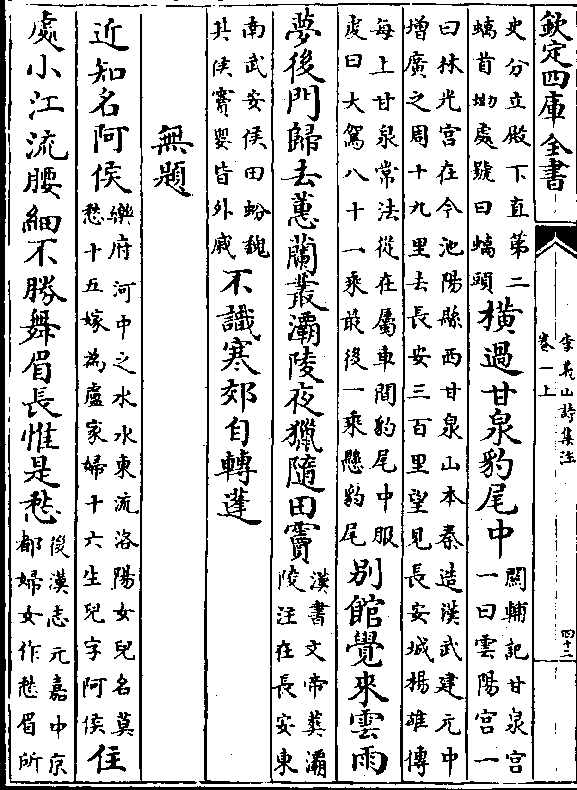 欽定四庫全書
李義山詩集注
卷一上
四十二
史分立殿下直第二
螭首坳處號曰螭頭
橫過甘泉豹尾中
關輔記甘泉宮
一曰雲陽宮一
曰林光宮在今池陽縣西甘泉山本秦造漢武建元中
增廣之周十九里去長安三百里望見長安城楊雄傳
每上甘泉常法從在屬車間豹尾中服
虔曰大駕八十一乘最後一乘懸豹尾
別館覺來雲雨
夢後門歸去蕙蘭叢灞陵夜獵隨田竇
漢書文帝葬灞
陵注在長安東
南武安侯田蚡魏
其侯竇嬰皆外戚
不識寒郊自轉蓬
無題
近知名阿侯
樂府河中之水水東流洛陽女兒名莫
愁十五嫁為盧家婦十六生兒字阿侯
住
處小江流腰細不勝舞眉長惟是愁
後漢志元嘉中京
都婦女作愁眉所